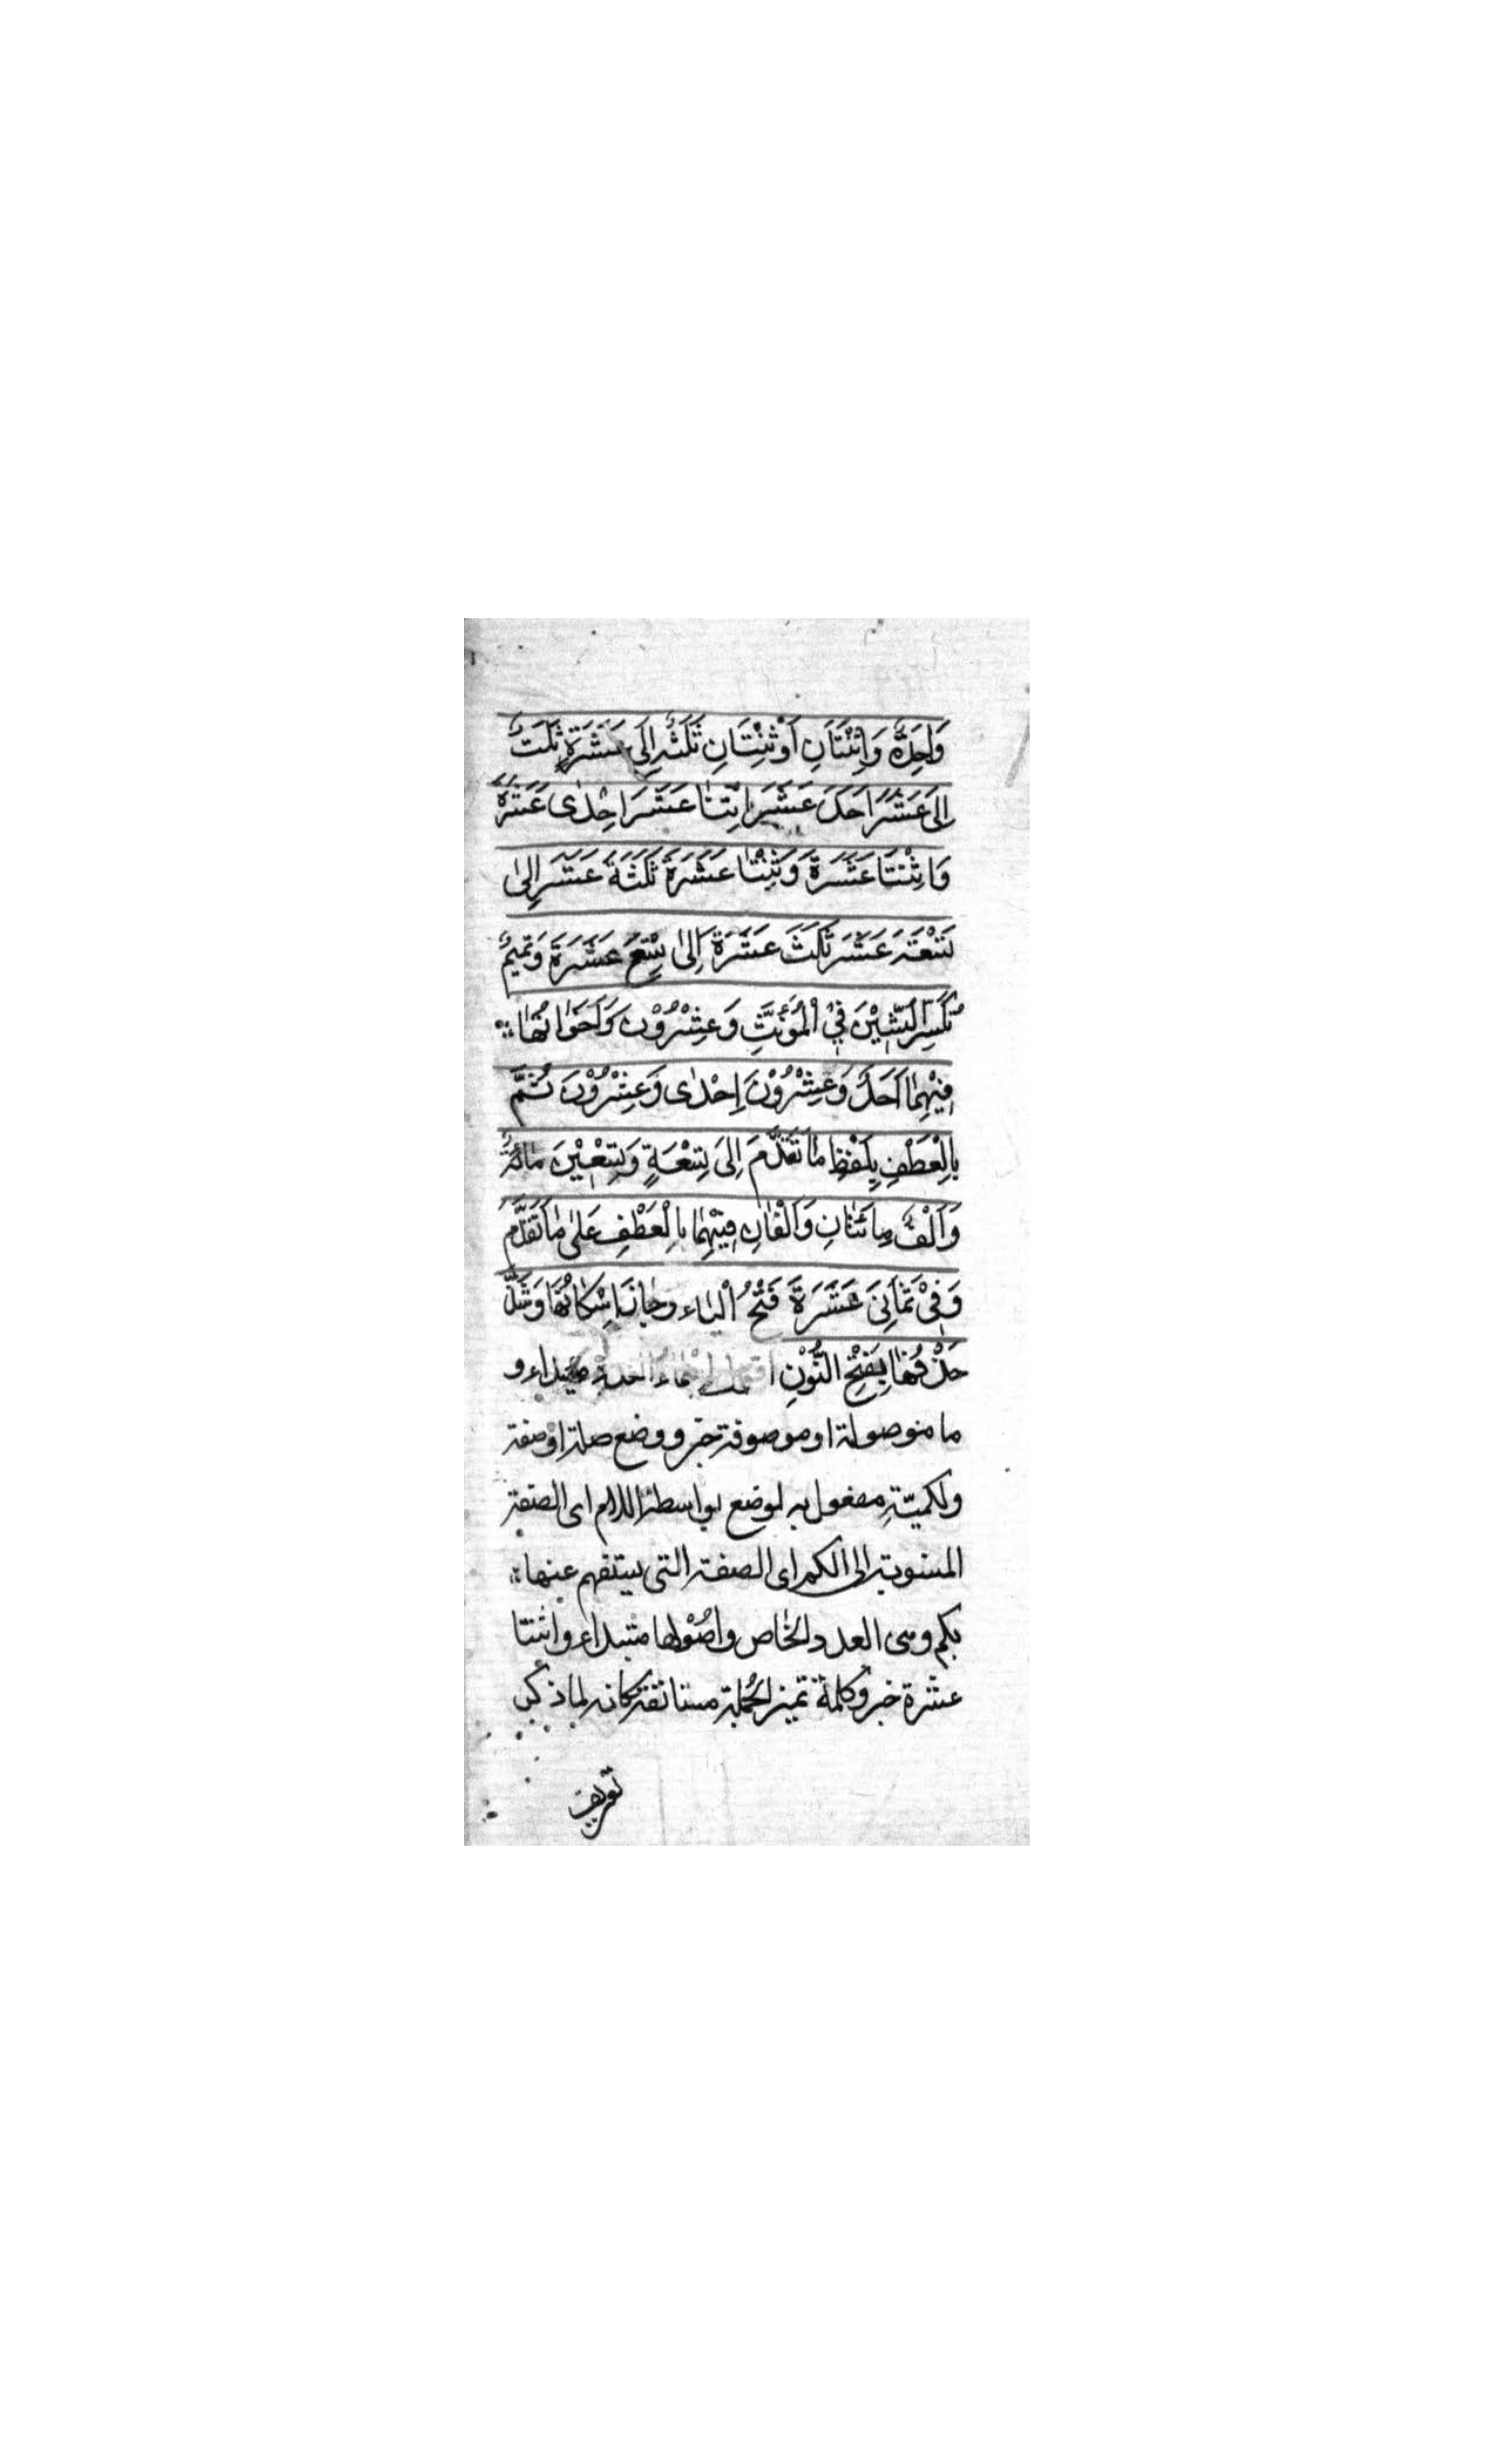 وَاحِدَةٌ وَاِثْنَتَانِ اَوْ ثِنْتَانِ ثَلٰثَةٌ اِلٰى عَشَرَةٍ ثَلٰثٌ
اِلىَ عَشَرَ اَحَدَ عَشَرَ اِثْنَا عَشَرَ اِحْدٰى عَشْرَةَ
وَاِثْنَتَا عَشَرَةَ وَثِنْتَا عَشَرَةَ ثَلٰثَةَ عَشَرَ اِلىٰ
تِسْعَةَ عَشَرَ ثَلٰثَ عَشَرَةَ اِلىٰ تِسْعَ عَشَرَةَ وَتَمِيْمُ
تُكَسِّرُ الشِّيْنَ فِي الْمُؤَنَّثِ وَعِشْرُوْنَ وَاَخَوَاتُهَا
فِيْهِمَا اَحَدٌ وَعِشْرُوْنَ اِحْدٰى وَعِشْرُوْنَ ثُمَّ
بِالْعَطْفِ بِلَفْظِ مَا تَقَدَّمَ اِلىَ تِسْعَةٍ وَتِسْعِيْنَ مِائَةٌ
وَاَلْفٌ مِائَتَانِ وَاَلْفَانِ فِيْهِمَا بِالْعَطْفِ عَلىٰ مَا تَقَدَّمَ
وَفِيْ ثَمَانِيَ عَشَرَةَ فَتْحُ الْيَاء وجَازَ اِسْكَانُهَا وَشَذَّ
حَذْفُهَا بِفَتْحِ النُّوْنِ العدد مبتداء و
ما موصولة او موصوفة خبر ووضع صلة او صفة
ولكميّة مفعول به لوضع بواسطة اللام اى الصفة
المنسوبة الى الكم اى الصفة التى يستفهم عنها
بكم وهى العدد الخاص واصُوْلها مبتداء واثنتا
عشرة خبر وكلمة تميز الجملة مستانفة كانه لما ذكر
تعريف